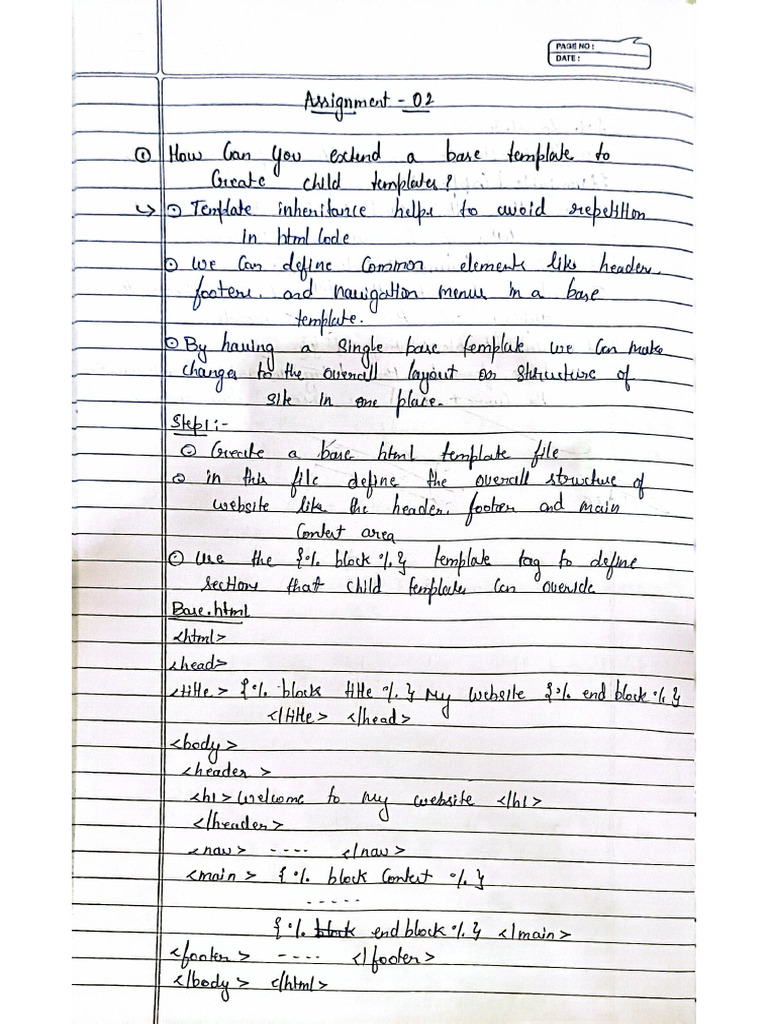 PAGE NO :
DATE :
Assignment - 02
① How Can you extend a base template to
Create child templates?
↳ ⊙ Template inheritance helps to avoid repetition
in html Code
⊙ We Can define Common elements like header,
footers, and navigation menus in a base
template.
⊙ By having a single base template we can make
changes to the overall layout or structure of
site in one place.
Step1 :-
⊙ Create a base html template file
⊙ in this file define the overall structure of
website like the header, footer and main
Content area
⊙ Use the {% block %} template tag to define
sections that child templates can override
Base.html
<html>
<head>
<title> {% block title %} My website {% end block %}
</title> </head>
<body>
<header >
<h1> Welcome to My website </h1>
</header>
<nav> ---- </nav>
<main> {% block Content %}
-----
{% block end block %} </main>
<footer> ---- </footer>
</body> </html>